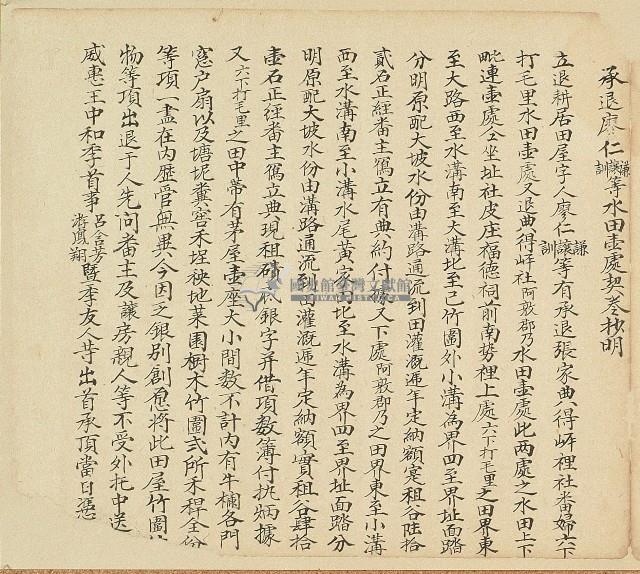 承退廖仁謙讓訓等水田壺處契卷抄明
立退耕居田屋字人廖仁謙讓訓等有承退張家典得岸裡社番婦六下
打毛里水田壺處又退典得岸社阿敦郡乃水田壺處此兩處之水田上下
毗連壺處仝坐址社皮庄福德祠前南勢裡上處六下打毛里之田界東
至大路西至水溝南至大溝北至己竹圍外小溝為界四至界址面踏
分明原配大坡水份由溝路通流到田灌溉遞年定納額寔租谷陸拾
貳石正經番主傌立有典約付據又下處阿敦郡乃之田界東至小溝
西至水溝南至小溝水尾黃家田北至水溝為界四至界址面踏分
明原配大坡水份由溝路通流到田灌溉遞年定納額實租谷肆拾
壺石正經番主傌立典現租磧銀字并借項数簿付执炳據
又六下打毛里之田中帶有茅屋壺座大小間数不計內有牛欄各門
窓户扇以及塘坭糞窖禾埕秧地菜園樹木竹圍弍所禾稈全份
等項一盡在內歷管無異今因乏銀別創愿將此田屋竹圍
物等項出退于人先问番主及讓房親人等不受外托中送
威惠王中和季首事呂合芳游鳳翔暨季友人等出首承頂當日憑
國史館臺灣文獻館
TAIWAN HISTORICA